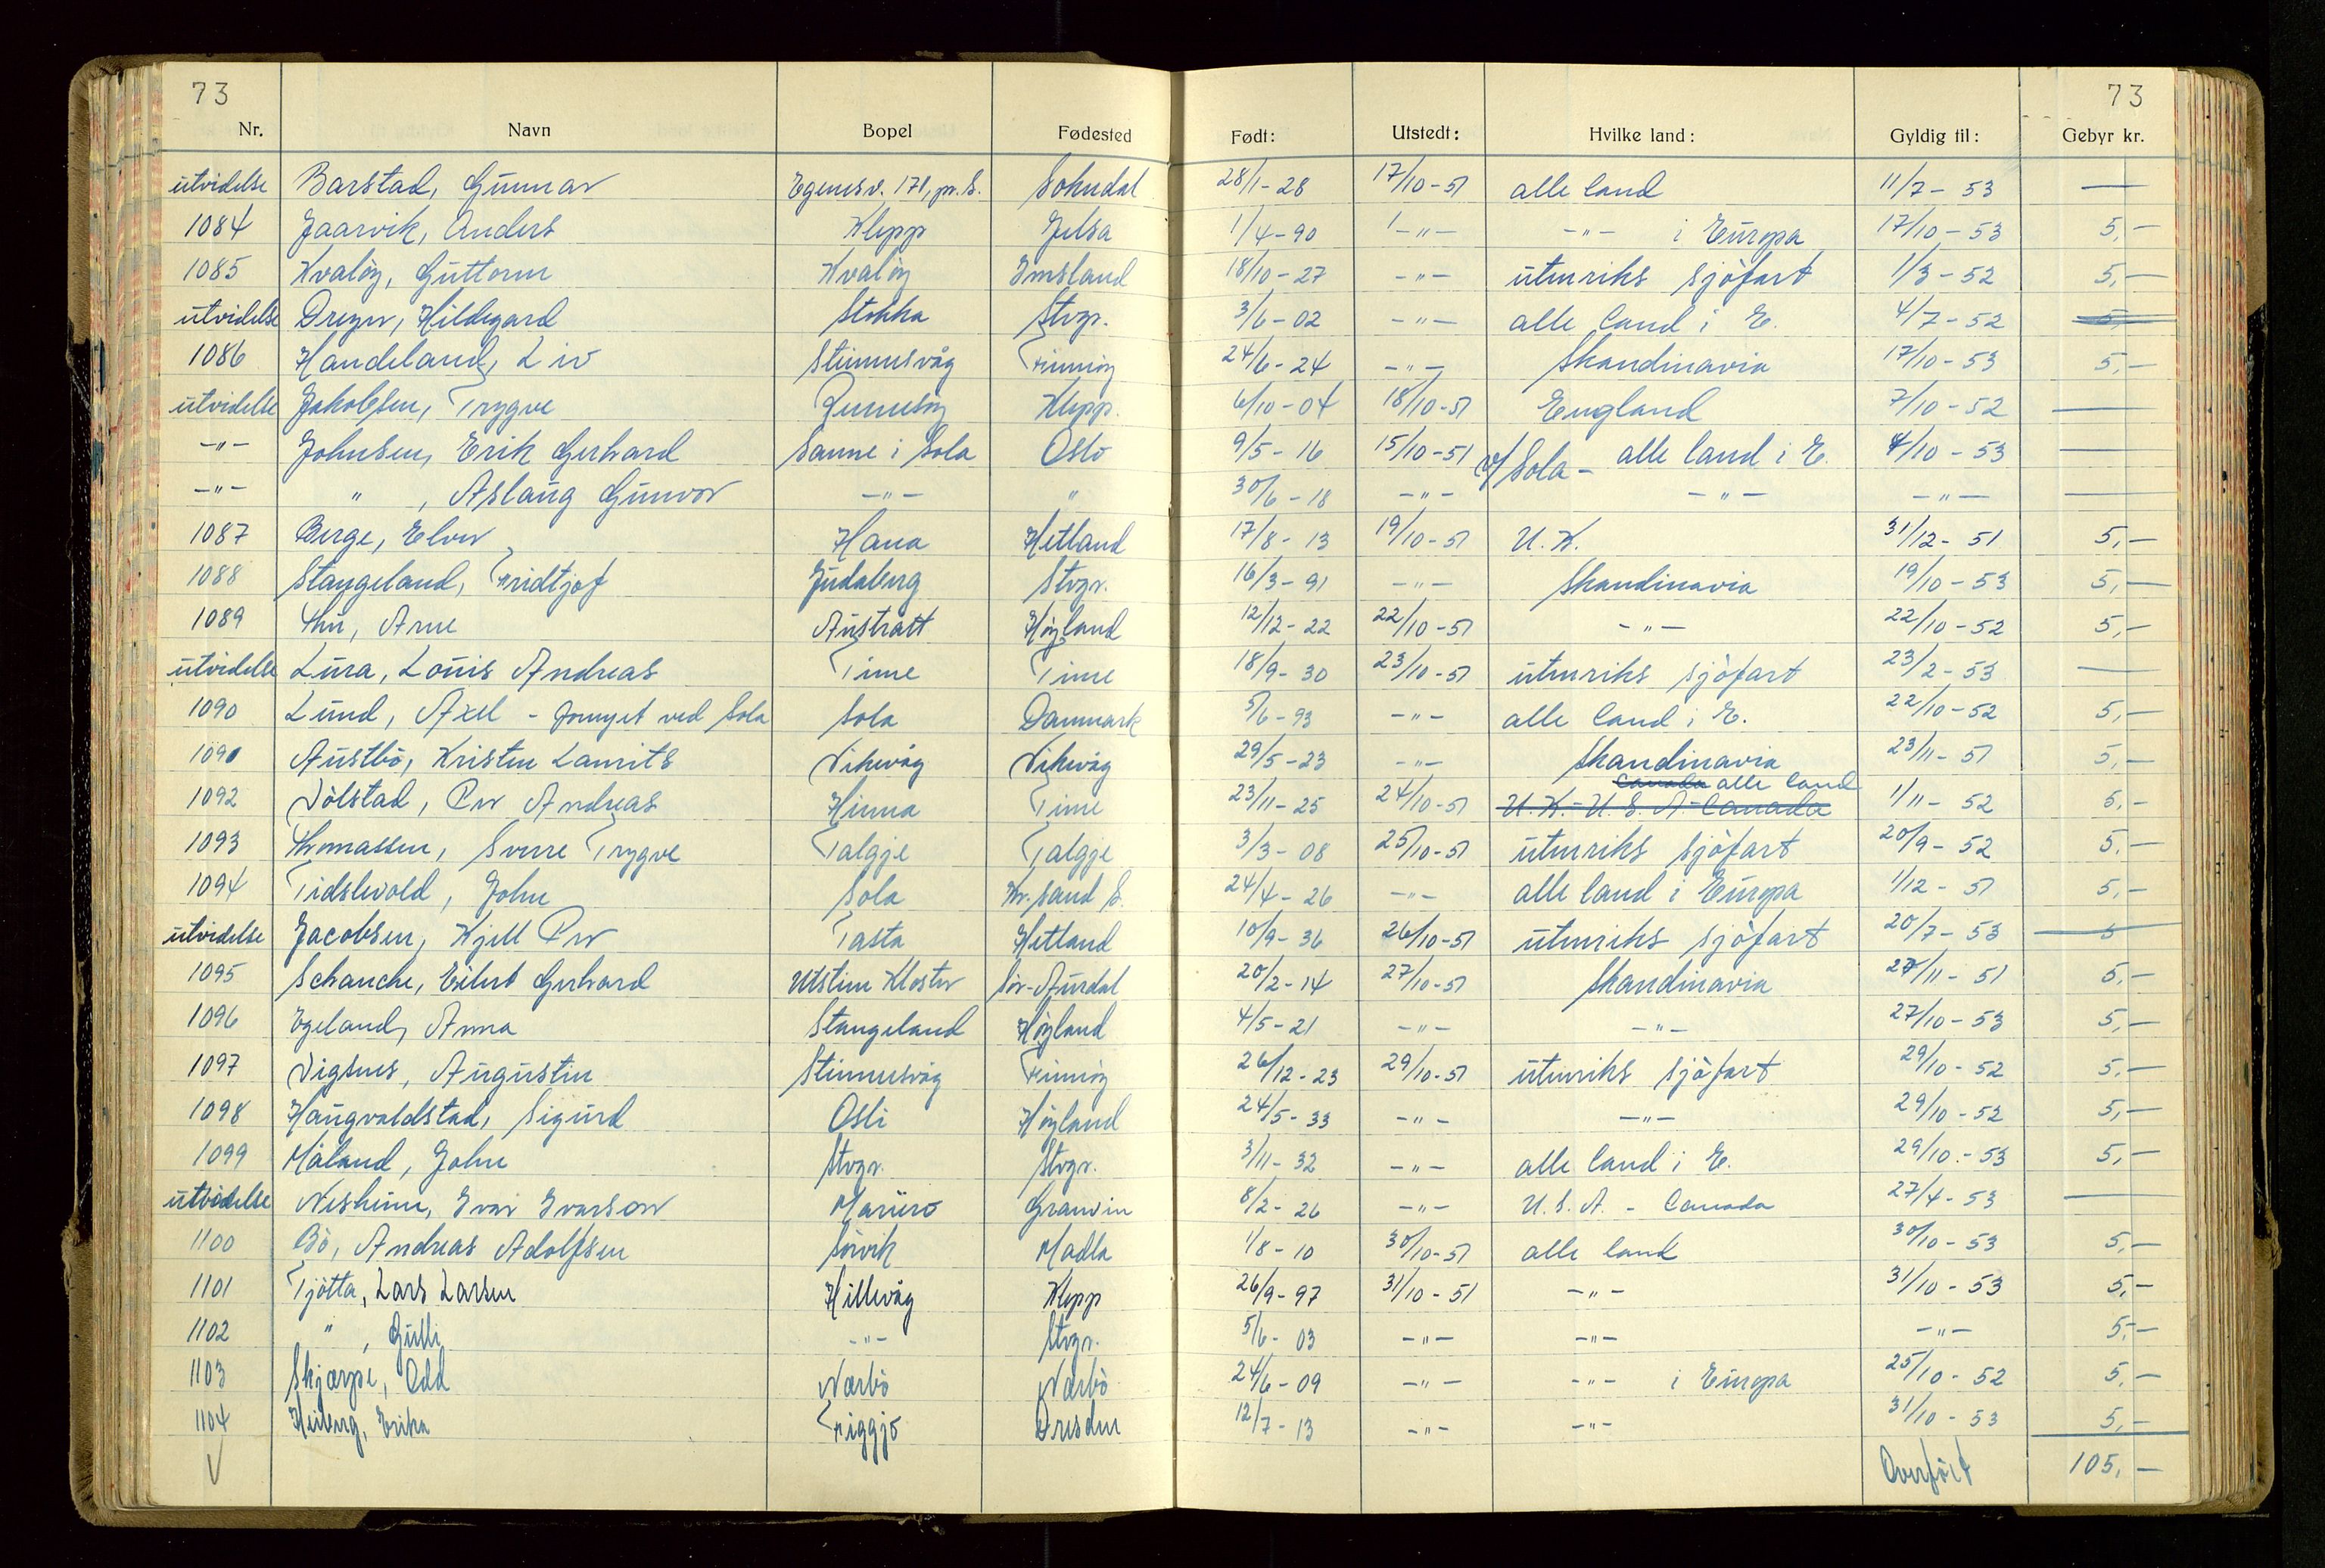 73 73
Nr. Navn Bopel Fødested Født: Utstedt: Hvilke land: Gyldig til: Gebyr kr.
utvidelse Barstad, Gunnar Egenesv. 171, pr. S. Sokndal 28/1-28 17/10-51 alle land 11/7-53 —
1084 Jaarvik, Anders Klepp Jelsa 1/4-90 -"- -"- i Europa 17/10-53 5,-
1085 Kvaløy, Guttorm Kvaløy Imsland 18/10-27 -"- utenriks sjöfart 1/3-52 5,-
utvidelse Dreyer, Hildegard Stokka Stvgr. 3/6-02 -"- alle land i E. 4/7-52 5,
1086 Handeland, Liv Steinnesvåg Finnøy 24/6-24 -"- Skandinavia 17/10-53 5,-
utvidelse Jakobsen, Trygve Klepp. 6/10-04 18/10-51 England 7/10-52 —
-"- Johnsen, Erik Gerhard Sanne i Sola Oslo 9/5-16 15/10-51 v/Sola - alle land i E. 4/10-53 —
-"- " , Aslaug Gunvor -"- " 30/6-18 -"- -"- -"- —
1087 Berge, Elver Hana Hetland 17/8-13 19/10-51 U.K. 31/12-51 5,-
1088 Stangeland, Fridtjof Judaberg Stvgr. 16/3-91 -"- Skandinavia 19/10-53 5,-
1089 Thu, Arne Austrått Høyland 12/12-22 22/10-51 -"- 22/10-52 5,-
utvidelse Lura, Louis Andreas Time Time 18/9-30 23/10-51 utenriks sjöfart 23/2-53 —
1090 Lund, Axel - fornyet ved Sola Sola Danmark 5/6-93 -"- alle land i E. 22/10-52 5,-
1091 Austbö, Kristen Laurits Vikevåg Vikevåg 29/5-23 -"- Skandinavia 23/11-51 5,-
Canada alle land
1092 Völstad, Per Andreas Hinna Time 23/11-25 24/10-51 U.K.- U.S.A- Canada 1/11-52 5,-
1093 Thomassen, Sverre Trygve Talgje Talgje 3/3-08 25/10-51 utenriks sjöfart 20/9-52 5.-
1094 Tidslevold, John Sola Kr.sand S. 24/4-26 -"- alle land i Europa 1/12-51 5,-
utvidelse Jacobsen, Kjell Per Tasta Hetland 10/9-36 26/10-51 utenriks sjöfart 20/7-53 5
1095 Schanche, Eilert Gerhard Utstein Kloster Sör-Aurdal 20/2-14 27/10-51 Skandinavia 27/11-51 5,-
1096 Egeland, Anna Stangeland Høyland 4/5-21 -"- -"- 27/10-53 5,-
1097 Vignes, Augustin Steinnesvåg Finnøy 26/12-23 29/10-51 utenriks sjöfart 29/10-52 5,-
1098 Haugvaldstad, Sigurd Osli Høyland 24/5-33 -"- -"- 29/10-52 5,-
1099 Måland, John Stvgr. Stvgr. 3/11-32 -"- alle land i E. 29/10-53 5,-
utvidelse Nesheim, Ivar Ivarson Mariero Granvin 8/2-26 -"- U.S.A. - Canada 27/4-53 —
1100 Bö, Andreas Adolfsen Sörvik Madla 1/8-10 30/10-51 alle land 30/10-53 5,-
1101 Tjötta, Lars Larsen Hillevåg Klepp 26/9-97 31/10-51 -"- 31/10-53 5,-
1102 " , Gulli -"- Stvgr. 5/6-03 -"- -"- -"- 5,-
1103 Skjærpe, Odd Nærbö Nærbö 24/6-09 -"- -"- i Europa 25/10-52 5,-
1104 Heiberg, Erika Figgjo Dresden 12/7-13 -"- -"- 31/10-53 5,-
Overfört 105,-